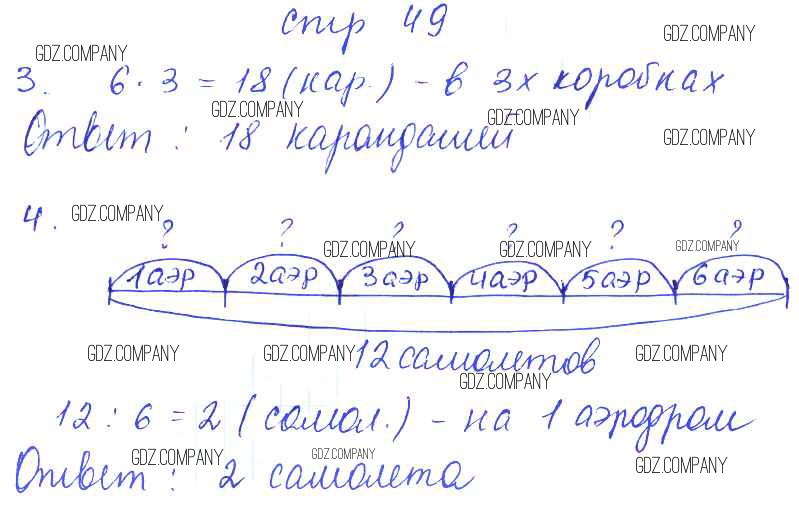 стр 49
GDZ.COMPANY GDZ.COMPANY
3. 6 · 3 = 18 (кар.) - в 3х коробках
GDZ.COMPANY GDZ.COMPANY
Ответ : 18 карандашей GDZ.COMPANY
4. GDZ.COMPANY
? ? ? ? ? ?
GDZ.COMPANY GDZ.COMPANY GDZ.COMPANY
1 аэр 2 аэр 3 аэр 4 аэр 5 аэр 6 аэр
GDZ.COMPANY GDZ.COMPANY 12 самолетов GDZ.COMPANY
GDZ.COMPANY
12 : 6 = 2 (самол.) - на 1 аэродром
GDZ.COMPANY GDZ.COMPANY GDZ.COMPANY
Ответ : 2 самолета